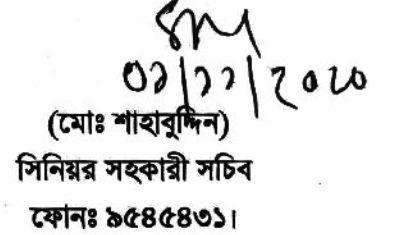 ০১/১১/২০২০
(মোঃ শাহাবুদ্দিন)
সিনিয়র সহকারী সচিব
ফোনঃ ৯৫৪৫৪৩১।